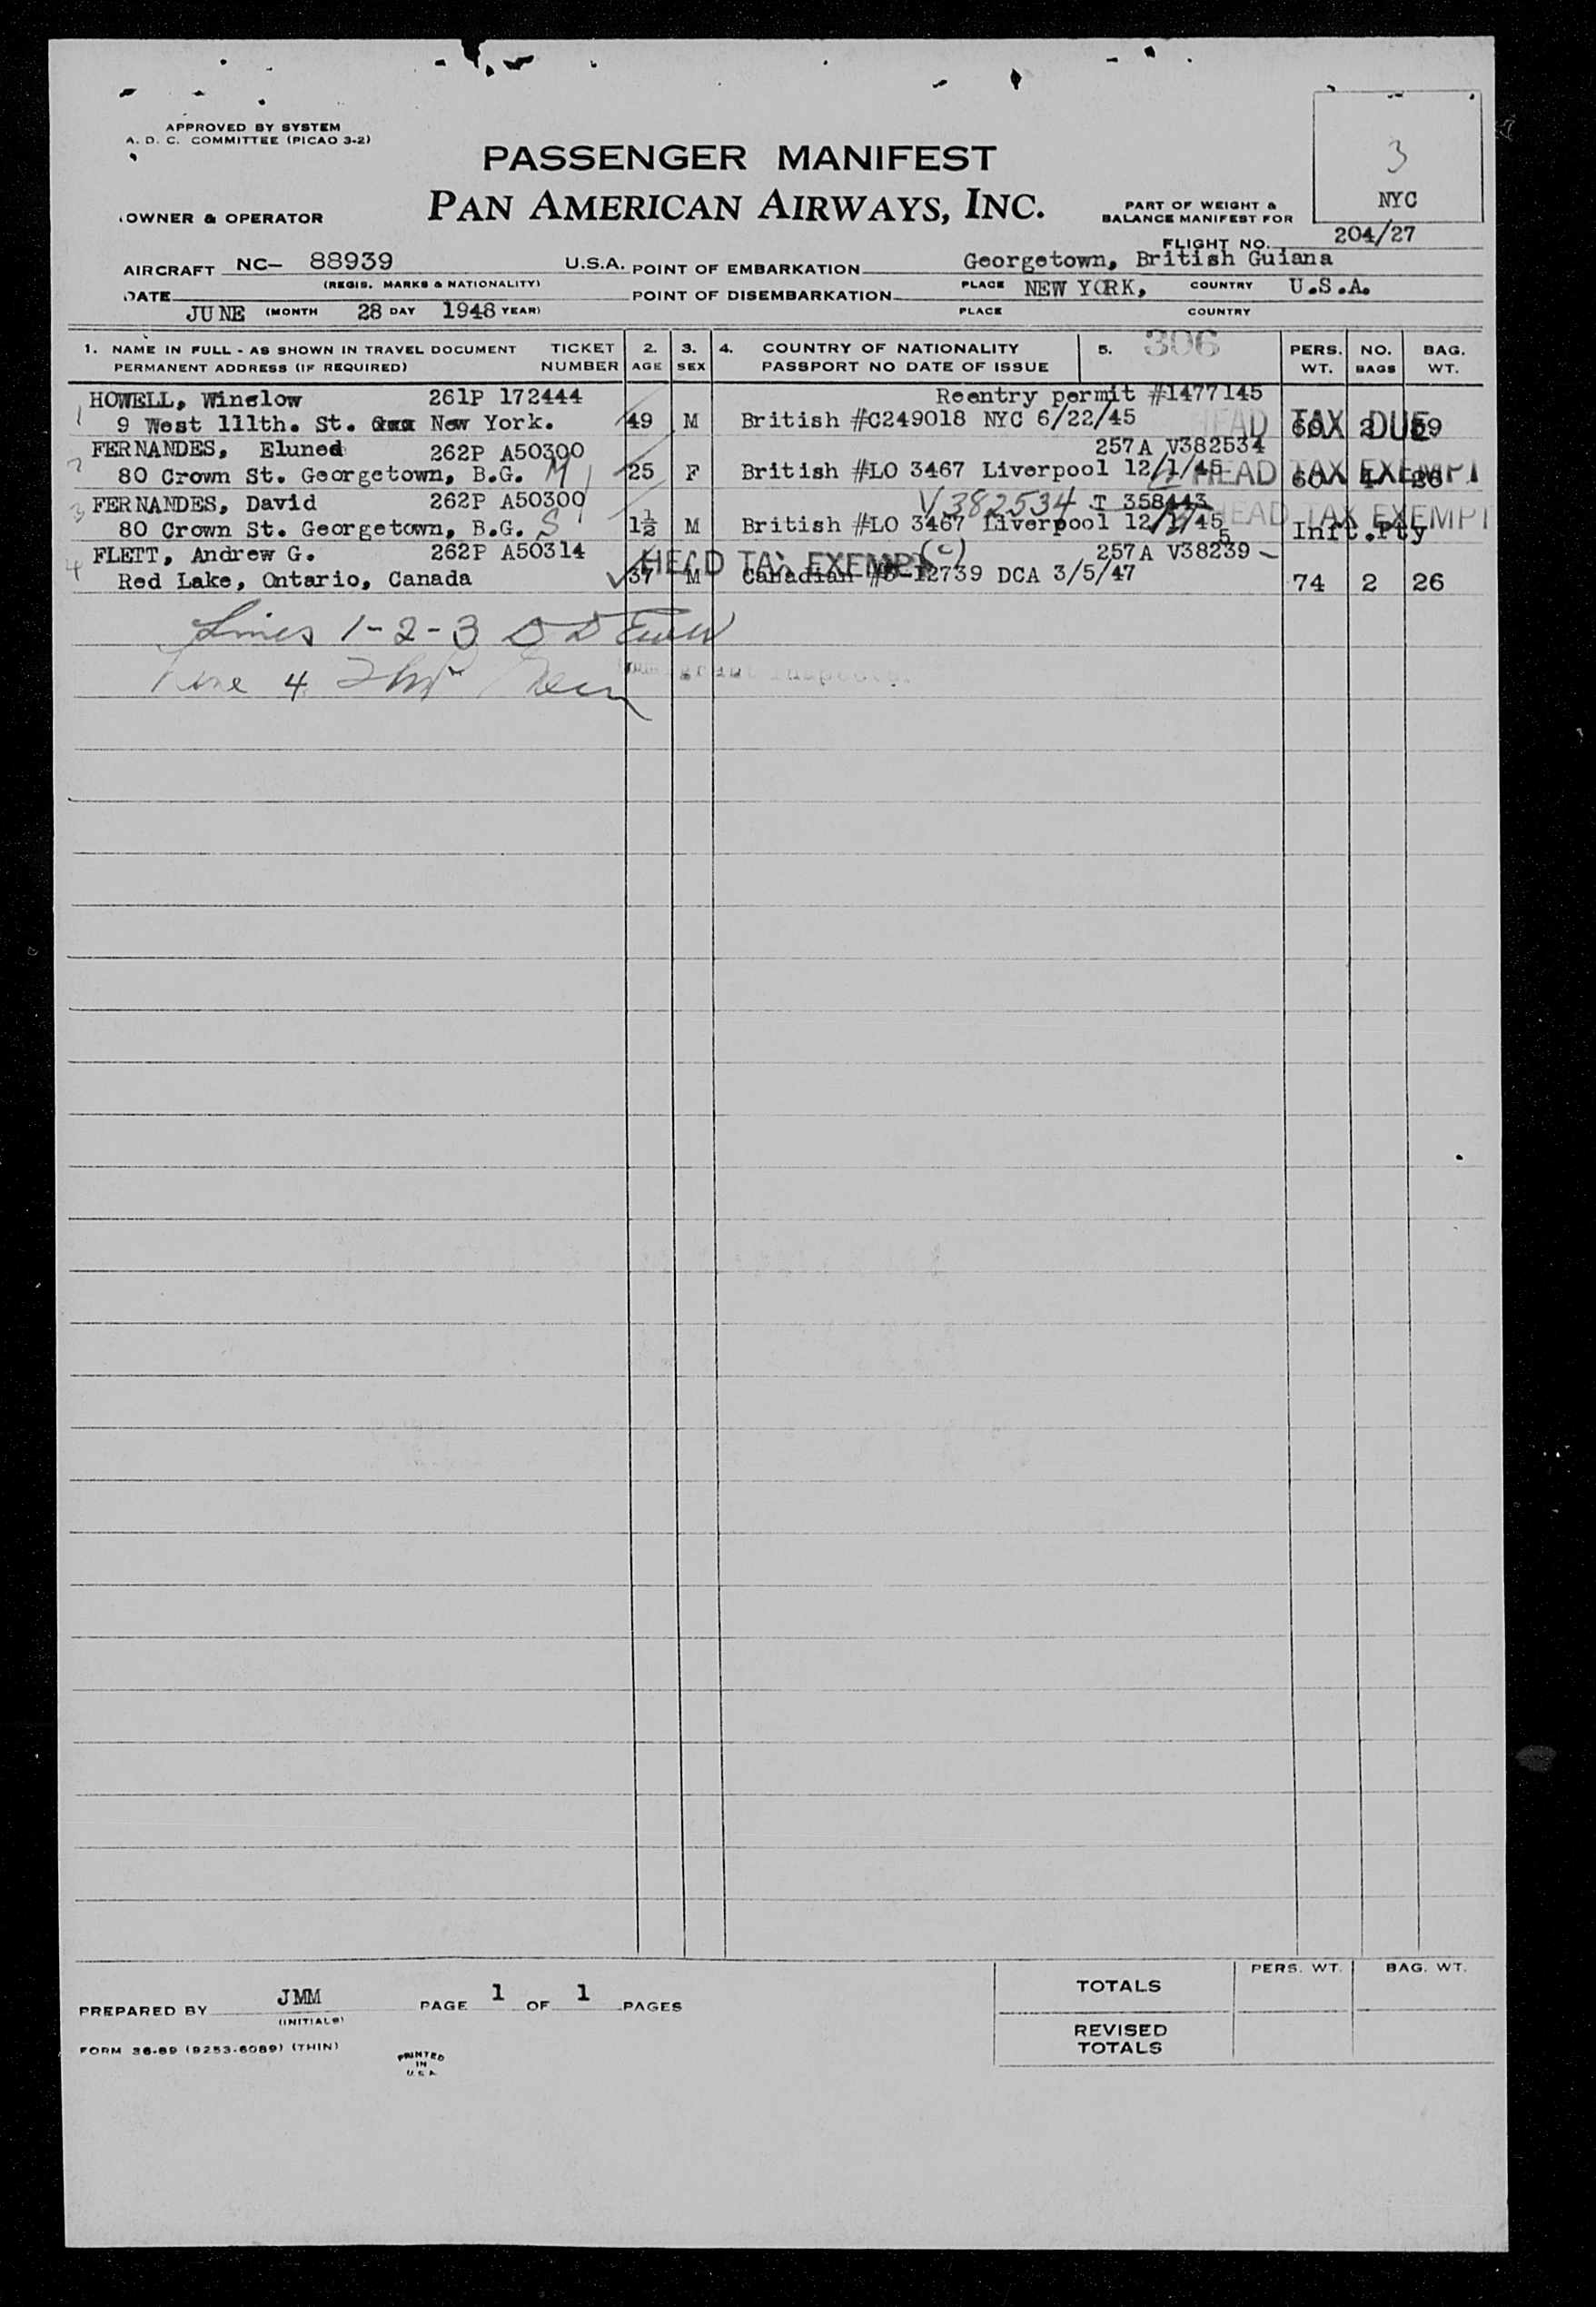 APPROVED BY SYSTEM
A. D. C. COMMITTEE (PICAO 3-2)
PASSENGER MANIFEST
PAN AMERICAN AIRWAYS, INC.
OWNER & OPERATOR
PART OF WEIGHT &
BALANCE MANIFEST FOR
3
NYC
FLIGHT NO. 204/27
AIRCRAFT NC- 88939 U.S.A.
(REGIS. MARKS & NATIONALITY)
POINT OF EMBARKATION Georgetown, British Guiana
PLACE COUNTRY
DATE JUNE (MONTH 28 DAY 1948 YEAR)
POINT OF DISEMBARKATION NEW YORK, U.S.A.
PLACE COUNTRY
1. NAME IN FULL - AS SHOWN IN TRAVEL DOCUMENT TICKET 2. 3. 4. COUNTRY OF NATIONALITY 5. 306 PERS. NO. BAG.
PERMANENT ADDRESS (IF REQUIRED) NUMBER AGE SEX PASSPORT NO DATE OF ISSUE WT. BAGS WT.
1 HOWELL, Winslow 261P 172444 Reentry permit #1477145
9 West 111th. St. New York. 49 M British #C249018 NYC 6/22/45 HEAD TAX DUE
2 FERNANDES, Eluned 262P A50300 257A V382534
80 Crown St. Georgetown, B.G. M 25 F British #LO 3467 Liverpool 12/1/45 HEAD TAX EXEMPT 60 26
3 FERNANDES, David 262P A50300 V382534 T 358443
80 Crown St. Georgetown, B.G. S 1½ M British #LO 3467 Liverpool 12/1/45 HEAD TAX EXEMPT Inft.Pty
4 FLETT, Andrew G. 262P A50314 HEAD TAX EXEMPT (c) 257A V38239 5
Red Lake, Ontario, Canada 37 M Canadian 12739 DCA 3/5/47 74 2 26
Lines 1-2-3
Line 4
TOTALS PERS. WT. BAG. WT.
REVISED
TOTALS
PREPARED BY JMM PAGE 1 OF 1 PAGES
(INITIALS)
FORM 36-89 (9253-6089) (THIN)
PRINTED
IN
U.S.A.